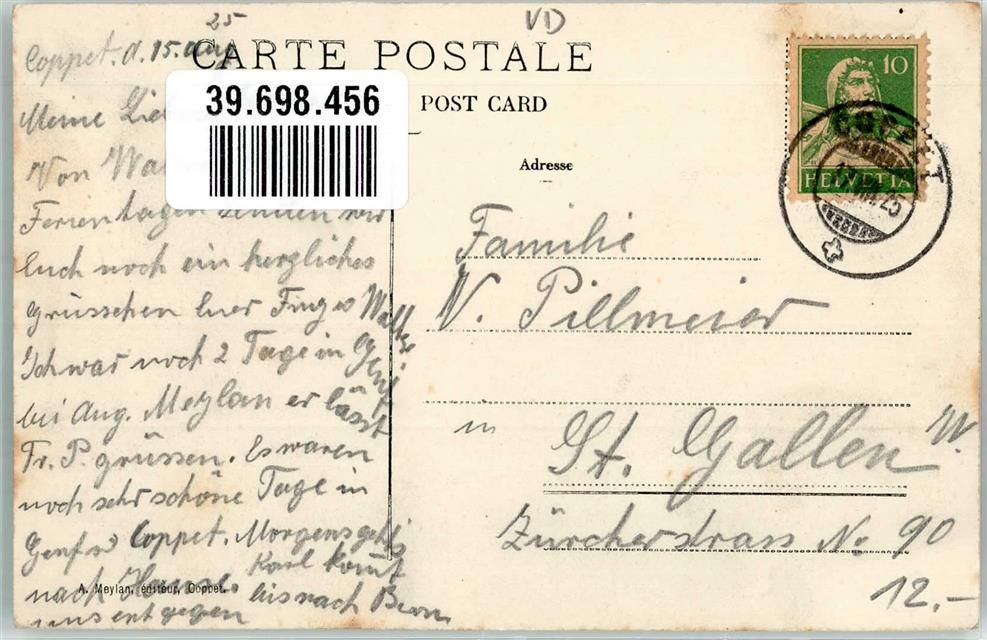 25
VD
Coppet. d. 15. Aug.
CARTE POSTALE
39.698.456
POST CARD
Adresse
10
HELVETIA
COPPET
Meine
Von
Ferientagen senden wir
Euch noch ein herzliches
Grüsschen Euer
Ich war noch 2 Tage in Genf
bei Aug. Meylan er lässt
Fr. P. grüssen. Es waren
noch sehr schöne Tage in
Genf u Coppet. Morgens gehts
nach Hause. Karl kömt
uns entgegen bis nach Bern
A. Meylan, éditeur, Coppet.
Familie
W. Pillmeier
in
St. Gallen W.
Zürcherstrass No 90
12.-